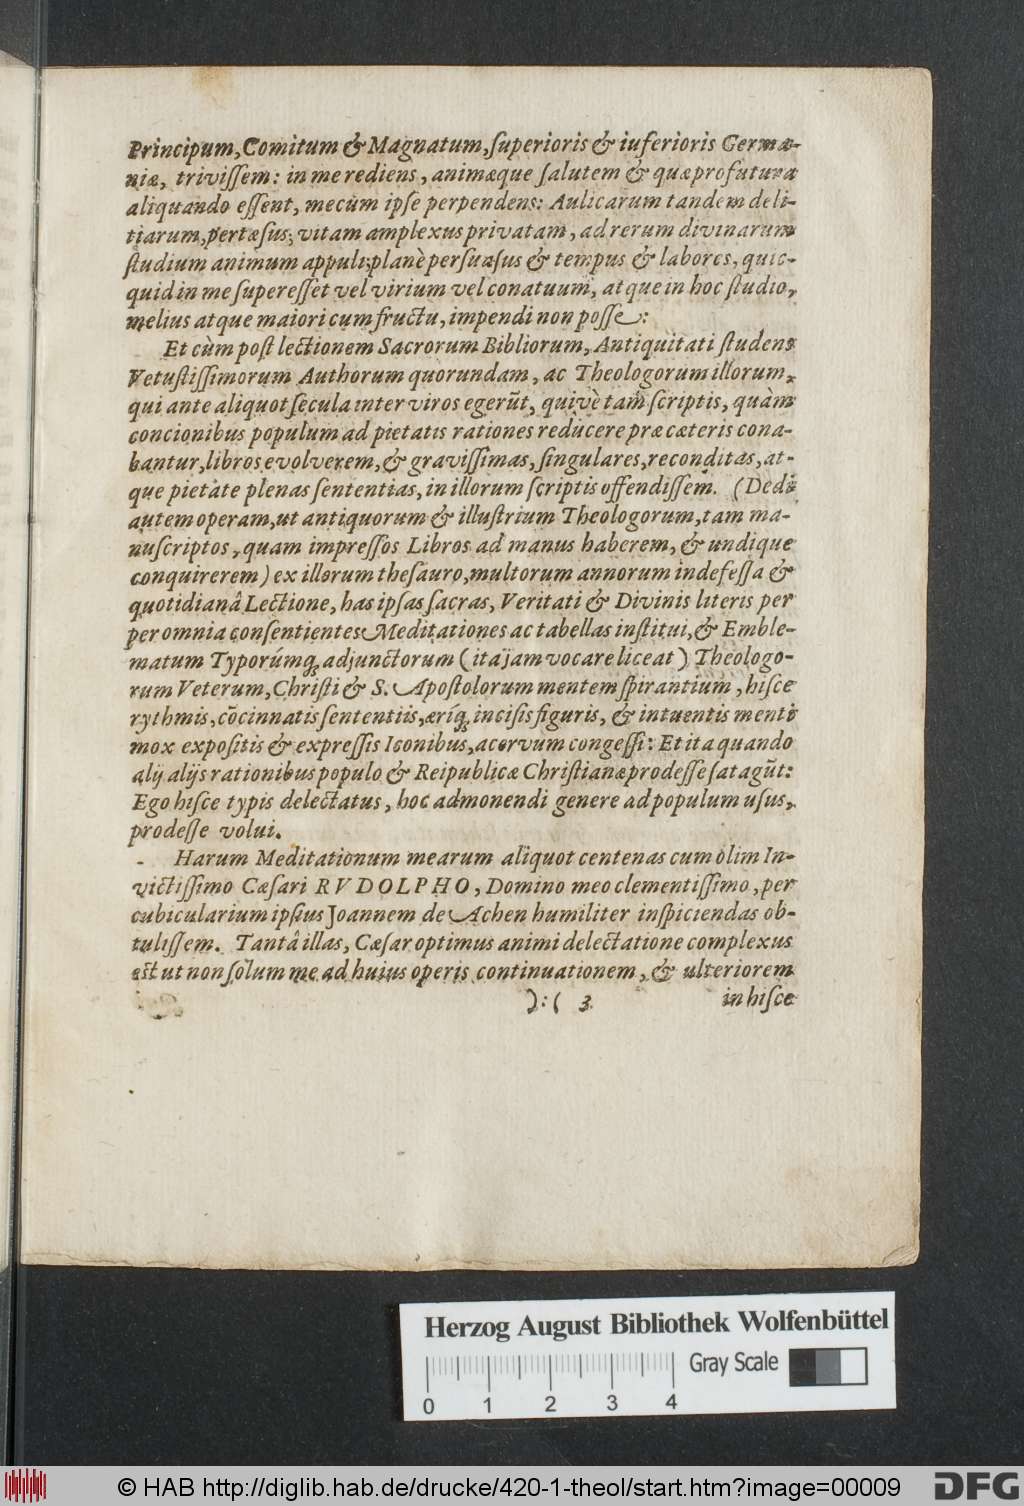 Principum, Comitum & Magnatum, ſuperioris & iuferioris Germa-
niæ, triviſſem: in me rediens, animæque ſalutem & quæ profutura
aliquando eſſent, mecùm ipſe perpendens: Aulicarum tandem deli-
tiarum, pertæſus; vitam amplexus privatam, ad rerum divinarum
ſtudium animum appuli; planè perſuaſus & tempus & labores, quic-
quid in me ſupereſſet vel virium vel conatuum, atque in hoc ſtudio,
melius atque maiori cum fructu, impendi non poſſe:
Et cùm poſt lectionem Sacrorum Bibliorum, Antiquitati ſtudens
Vetuſtiſſimorum Authorum quorundam, ac Theologorum illorum,
qui ante aliquot ſecula inter viros egerūt, quivè tam ſcriptis, quàm
concionibus populum ad pietatis rationes reducere præ cæteris cona-
bantur, libros evolverem, & graviſſimas, ſingulares, reconditas, at-
que pietate plenas ſententias, in illorum ſcriptis offendiſſem. (Dedi
autem operam, ut antiquorum & illuſtrium Theologorum, tam ma-
nuſcriptos, quam impreſſos Libros ad manus haberem, & undique
conquirerem) ex illorum theſauro, multorum annorum indefeſſa &
quotidianâ Lectione, has ipſas ſacras, Veritati & Divinis literis per
per omnia conſentientes Meditationes ac tabellas inſtitui, & Emble-
matum Typorúmq; adjunctorum (ita jam vocare liceat) Theologo-
rum Veterum, Chriſti & S. Apoſtolorum mentem ſpirantium, hiſce
rythmis, cōcinnatis ſententiis, æríq; inciſis figuris, & intuentis menti
mox expoſitis & expreſſis Iconibus, acervum congeſſi: Et ita quando
alij alijs rationibus populo & Reipublicæ Chriſtianæ prodeſſe ſatagūt:
Ego hiſce typis delectatus, hoc admonendi genere ad populum uſus,
prodeſſe volui.
Harum Meditationum mearum aliquot centenas cum olim In-
victiſſimo Cæſari RVDOLPHO, Domino meo clementiſſimo, per
cubicularium ipſius Joannem de Achen humiliter inſpiciendas ob-
tuliſſem. Tantâ illas, Cæſar optimus animi delectatione complexus
eſt ut non ſolum me ad huius operis continuationem, & ulteriorem
):( 3 in hiſce
Herzog August Bibliothek Wolfenbüttel
Gray Scale
0 1 2 3 4
© HAB http://diglib.hab.de/drucke/420-1-theol/start.htm?image=00009
DFG